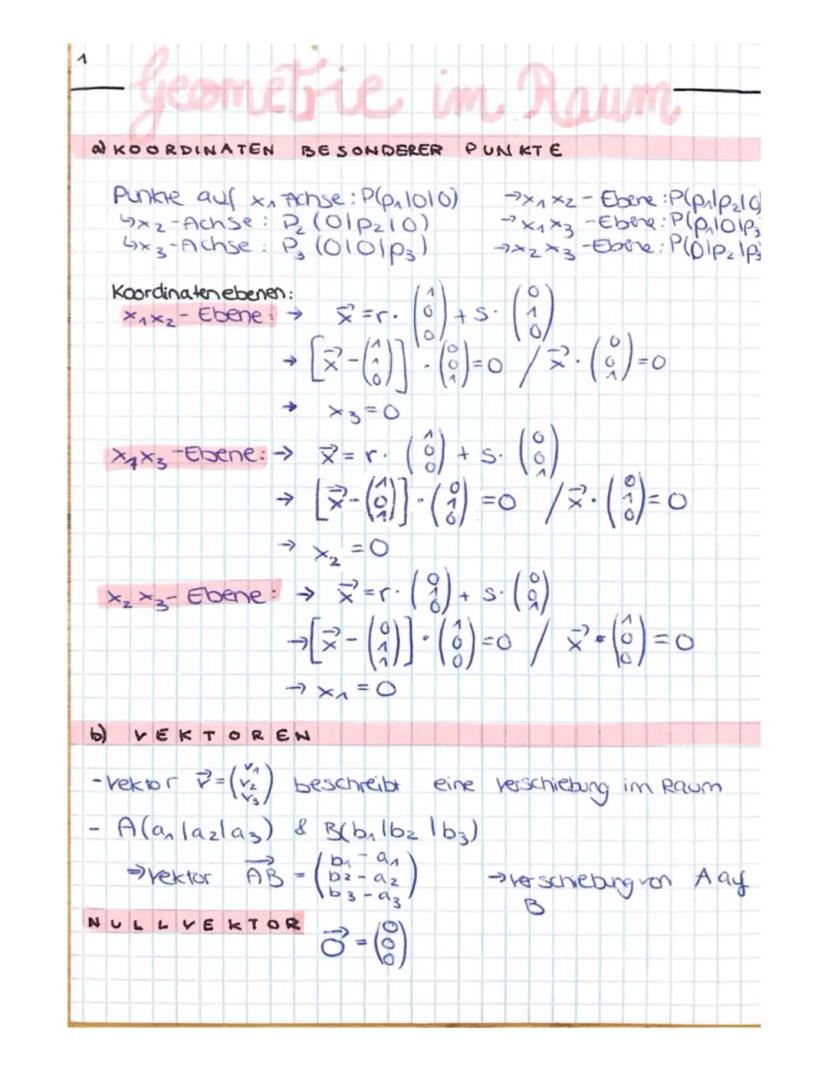 1
Geometrie im Raum
a) KOORDINATEN BESONDERER PUNKTE
Punkte auf x₁ Achse: P(p₁|0|0) →x₁x₂-Ebene: P(p₁|p₂|0
↳x₂-Achse: P₂ (0|p₂|0) →x₁x₃-Ebene: P(p₁|0|p₃
↳x₃-Achse: P₃ (0|0|p₃) →x₂x₃-Ebene: P(0|p₂|p₃
Koordinatenebenen:
x₁x₂-Ebene: → x⃗=r·(1 0 0)+s·(0 1 0)
→ [x⃗-(1 1 0)]·(0 0 1)=0 / x⃗·(0 0 1)=0
→ x₃=0
x₁x₃-Ebene: → x⃗=r·(1 0 0)+s·(0 0 1)
→ [x⃗-(1 0 1)]·(0 1 0)=0 / x⃗·(0 1 0)=0
→ x₂=0
x₂x₃-Ebene: → x⃗=r·(0 1 0)+s·(0 0 1)
→[x⃗-(0 1 1)]·(1 0 0)=0 / x⃗·(1 0 0)=0
→ x₁=0
b) VEKTOREN
-Vektor v⃗=(v₁ v₂ v₃) beschreibt eine Verschiebung im Raum
- A(a₁|a₂|a₃) & B(b₁|b₂|b₃)
→Vektor AB⃗=(b₁-a₁ b₂-a₂ b₃-a₃) →Verschiebung von A auf
B
NULLVEKTOR
0⃗=(0 0 0)